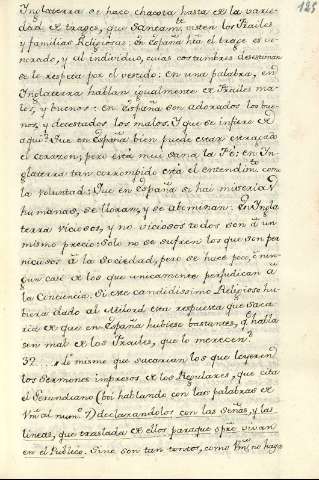 125
Ynglaterra se hace chacota hasta de la varie-
dad de trages, que Santam.te visten los Frailes
y familias Religiosas: En España hta el trage es ve-
nerado, y al individuo, cuias costumbres desestiman
se le respeta por el vestido: En una palabra, en
Ynglaterra hablan igualmente de Frailes ma-
los, y buenos: en España son adorados los bue-
nos, y detestados los malos. Y que se infiere de
aqui? Que en España bien puede estar estragado
el corazon; pero está mui sana la Fé: en Yn-
glaterra tan corrompido está el entendim.to como
la voluntad: Que en España se hai miserias
humanas, se lloran, y se abominan: En Ingla
terra viciosos, y no viciosos todos son á un
mismo precio: Solo no se sufren los que son per-
niciosos á la Sociedad, pero se hace poco, ó nin-
gun caso de los que unicamente perjudican á
la Conciencia. Si este candidissimo Religioso hu-
biera dado al Milord esta respuesta que saca-
ria de que en España hubiese bastantes, q.e habla
sen mal de los Frailes, que lo merecen?
32.... Lo mismo que sacarian los que leyeren
los Sermones impresos de los Regulares, que cita
el Gerundiano (voi hablando con las palabras de
Vm. al num.o 7) declarandolos con las señas, y las
lineas, que traslada de ellos para que spre vivan
en el Publico. Sino son tan tontos, como Vm. no haga